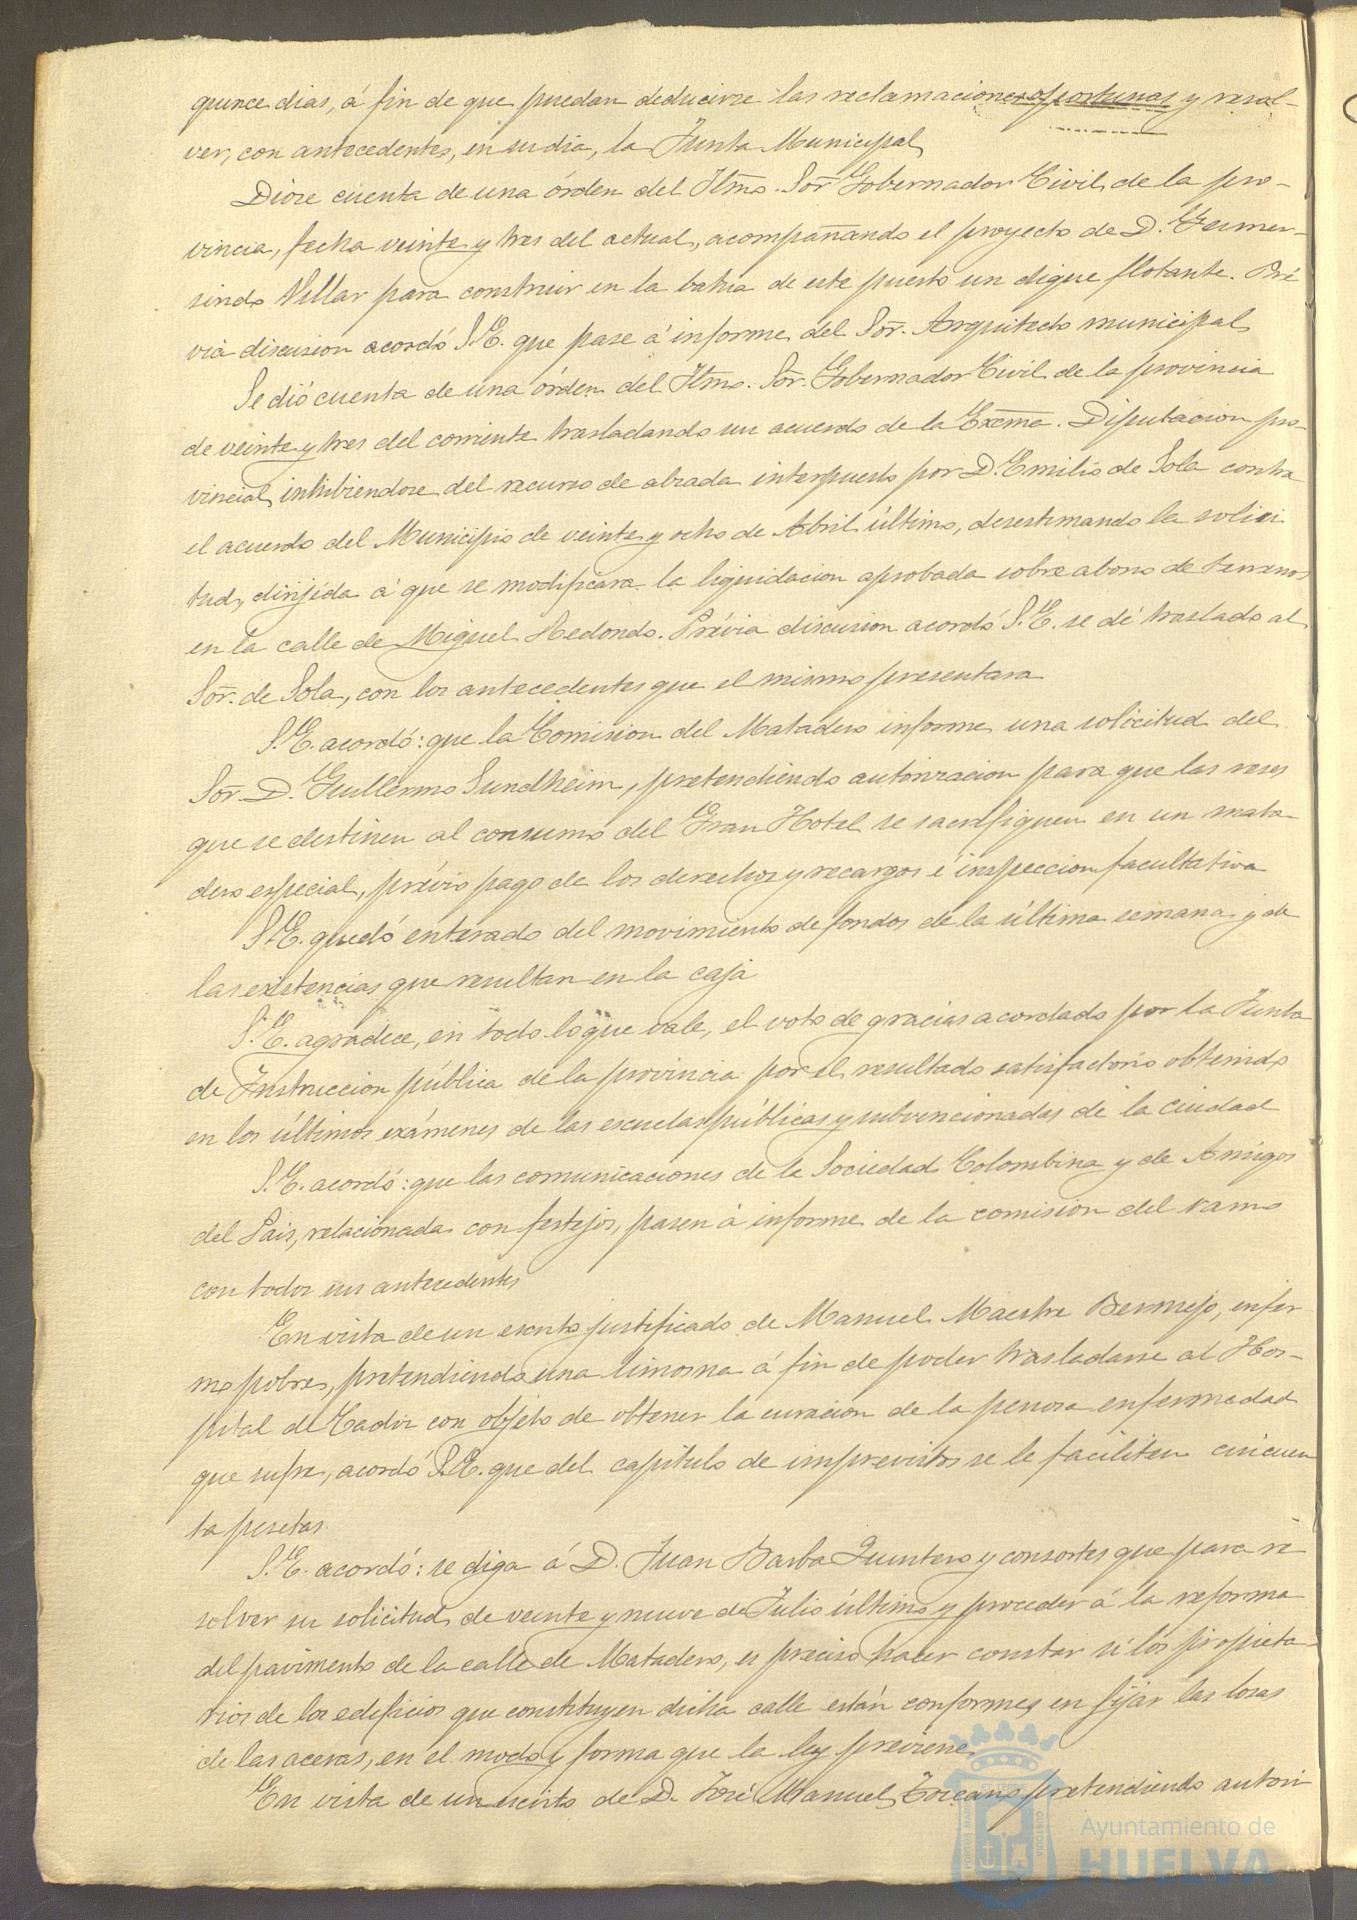 quince dias, á fin de que puedan deducirse las reclamaciones oportunas y resol-
ver, con antecedentes, en su dia, la Junta Municipal
Diose cuenta de una órden del Iltmo. Sor Gobernador Civil de la pro-
vincia, fecha veinte y tres del actual, acompañando el proyecto de D. Gumer-
sindo Villar para construir en la bahia de este puerto un dique flotante. Pré
via discusion acordó S.E. que pase á informe del Sor. Arquitecto municipal
Se dió cuenta de una órden del Iltmo. Sor. Gobernador Civil de la provincia
de veinte y tres del corriente trasladando un acuerdo de la Excma. Diputacion pro-
vincial, inhibiendose del recurso de alzada interpuesto por D. Emilio de Sola contra
el acuerdo del Municipio de veinte y ocho de Abril último, desestimando la solici
tud, dirijida á que se modificara la liquidacion aprobada sobre abono de terrenos
en la calle de Miguel Redondo. Prévia discusion acordó S.E. se dé traslado al
Sor. de Sola, con los antecedentes que el mismo presentara
S.E. acordó: que la Comision del Matadero informe una solicitud del
Sor. D. Guillermo Sundheim, pretendiendo autorizacion para que las reses
que se destinen al consumo del Gran Hotel se sacrifiquen en un mata-
dero especial, prévio pago de los derechos y recargos é inspeccion facultativa
S.E. quedó enterado del movimiento de fondos de la última semana y de
las existencias que resultan en la caja
S.E. agradece, en todo lo que vale, el voto de gracias acordado por la Junta
de Instruccion pública de la provincia por el resultado satisfactorio obtenido
en los últimos exámenes de las escuelas públicas y subvencionadas de la ciudad
S.E. acordó: que las comunicaciones de la Sociedad Colombina y de Amigos
del Pais, relacionadas con festejos, pasen á informe de la comision del ramo
con todos sus antecedentes
En vista de un escrito justificado de Manuel Maestre Bermejo, enfer-
mo pobre, pretendiendo una limosna á fin de poder trasladarse al Hos-
pital de Cadiz con objeto de obtener la curacion de la penosa enfermedad
que sufre, acordó S.E. que del capitulo de imprevistos se le faciliten cincuen
ta pesetas.
S.E. acordó: se diga á D. Juan Barba Quintero y consortes que para re-
solver su solicitud de veinte y nueve de Julio último y proceder á la reforma
del pavimento de la calle de Matadero, es preciso hacer constar si los propieta-
rios de los edificios que constituyen dicha calle están conformes en fijar las losas
de las aceras, en el modo y forma que la ley previene
En vista de un escrito de D. José Manuel Toscano pretendiendo autori
Ayuntamiento de
HUELVA